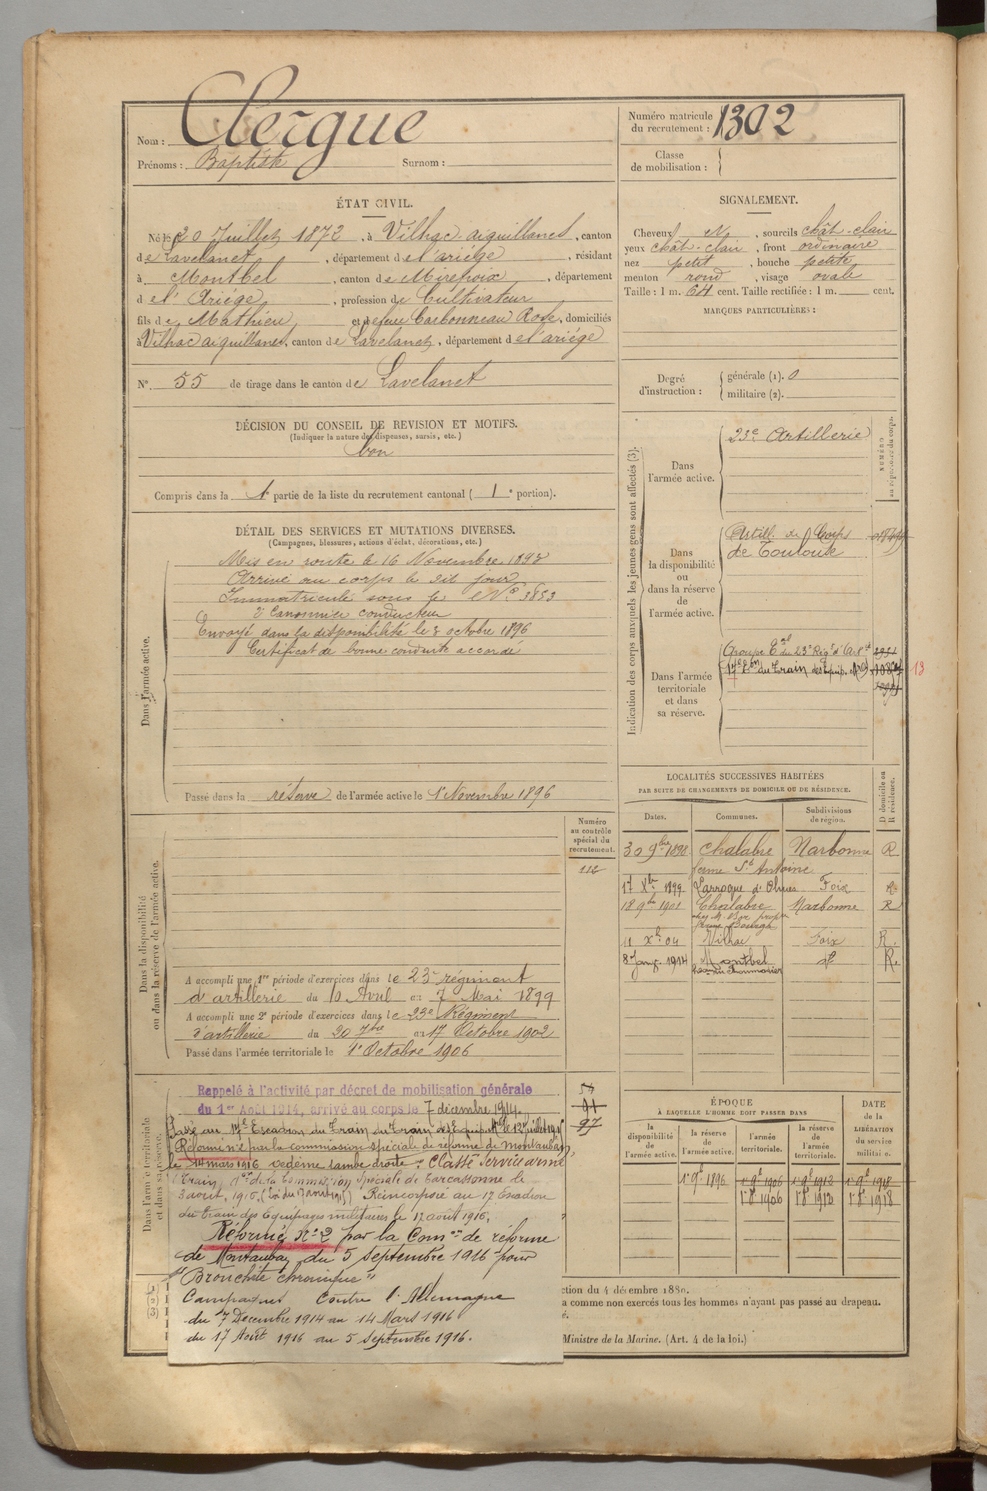 Nom : Clergue
Prénoms : Baptiste Surnom :
Numéro matricule
du recrutement : 1302
Classe
de mobilisation :
ÉTAT CIVIL.
Né le 20 Juillet 1872, à Vilhac-aiguillanes, canton
de Lavelanet, département de l'ariége, résidant
à Montbel, canton de Mirepoix, département
de l'Ariége, profession de Cultivateur
fils de Mathieu et de feue Carbonneau Rose, domiciliés
à Vilhac aiguillanes, canton de Lavelanet, département de l'ariége
N° 55 de tirage dans le canton de Lavelanet
SIGNALEMENT.
Cheveux N, sourcils chât-clair
yeux chât-clair, front ordinaire
nez petit, bouche petite
menton rond, visage ovale
Taille : 1 m. 64 cent. Taille rectifiée : 1 m. cent.
MARQUES PARTICULIÈRES :
Degré
d'instruction : générale (1). 0
militaire (2).
DÉCISION DU CONSEIL DE REVISION ET MOTIFS.
(Indiquer la nature des dispenses, sursis, etc.)
bon
Compris dans la 1e partie de la liste du recrutement cantonal ( 1e portion).
DÉTAIL DES SERVICES ET MUTATIONS DIVERSES.
(Campagnes, blessures, actions d'éclat, décorations, etc.)
Dans l'armée active.
Mis en route le 16 Novembre 1893
Arrivé au corps le dit jour
Immatriculé sous le N° 3853
2e Canonnier conducteur
Envoyé dans la disponibilité le 8 octobre 1896
Certificat de bonne conduite accordé
Passé dans la réserve de l'armée active le 1er Novembre 1896
Indication des corps auxquels les jeunes gens sont affectés (3).
NUMÉRO
au répertoire du corps.
Dans
l'armée active.
23e Artillerie
Dans
la disponibilité
ou
dans la réserve
de
l'armée active.
Artill. de Corps
de Toulouse
Dans l'armée
territoriale
et dans
sa réserve.
Groupe Eal du 23e Rég. d'Art
17e Eon du Train des Equip. Mres
13
LOCALITÉS SUCCESSIVES HABITÉES
PAR SUITE DE CHANGEMENTS DE DOMICILE OU DE RÉSIDENCE.
Dates. Communes. Subdivisions de région. D domicile ou R résidence.
30 9bre 1898 Chalabre Narbonne R
ferme St Antoine
17 Xbre 1899 Larroque d'Olmes Foix R
18 9bre 1901 Chalabre Narbonne R
11 Xbre 04 Vilhac Foix R.
8 Janv. 1914 Montbel do R.
Dans la disponibilité
ou dans la réserve de l'armée active.
Numéro
au contrôle
spécial du
recrutement.
112
A accompli une 1re période d'exercices dans le 23e régiment
d'artillerie du 10 Avril au 7 Mai 1899
A accompli une 2e période d'exercices dans le 23e Régiment
d'artillerie du 20 7bre au 17 Octobre 1902
Passé dans l'armée territoriale le 1er Octobre 1906
Dans l'armée territoriale
et dans sa réserve.
Rappelé à l'activité par décret de mobilisation générale
du 1er Août 1914, arrivé au corps le 7 décembre 1914.
Passé au 17e Escadron du Train des Equip. Mres le 12 juillet 1915
Réformé n° 2 par la commission spéciale de réforme de Montauban
le 14 mars 1916 œdème jambe droite. Classé service armé
(Train) don de la Commission spéciale de Carcassonne le
3 août 1916. (Loi du 17 août 1915) Réincorporé au 17 Escadron
du Train des Equipages militaires le 17 août 1916.
Réformé N° 2 par la Comon de réforme
de Montauban du 5 septembre 1916 pour
"Bronchite chronique"
Campagnes Contre l'Allemagne
du 7 Décembre 1914 au 14 Mars 1916
du 17 Août 1916 au 5 septembre 1916.
54
91
97
ÉPOQUE
A LAQUELLE L'HOMME DOIT PASSER DANS
DATE
de la
LIBÉRATION
du service
militaire.
la disponibilité de l'armée active. la réserve de l'armée active. l'armée territoriale. la réserve de l'armée territoriale.
1er 9bre 1896 1er 9bre 1906 1er 9bre 1912 1er 9bre 1918
1er 8bre 1906 1er 8bre 1912 1er 8bre 1918
(1)
(2)
(3)
ction du 4 décembre 1889.
a comme non exercés tous les hommes n'ayant pas passé au drapeau.
Ministre de la Marine. (Art. 4 de la loi.)